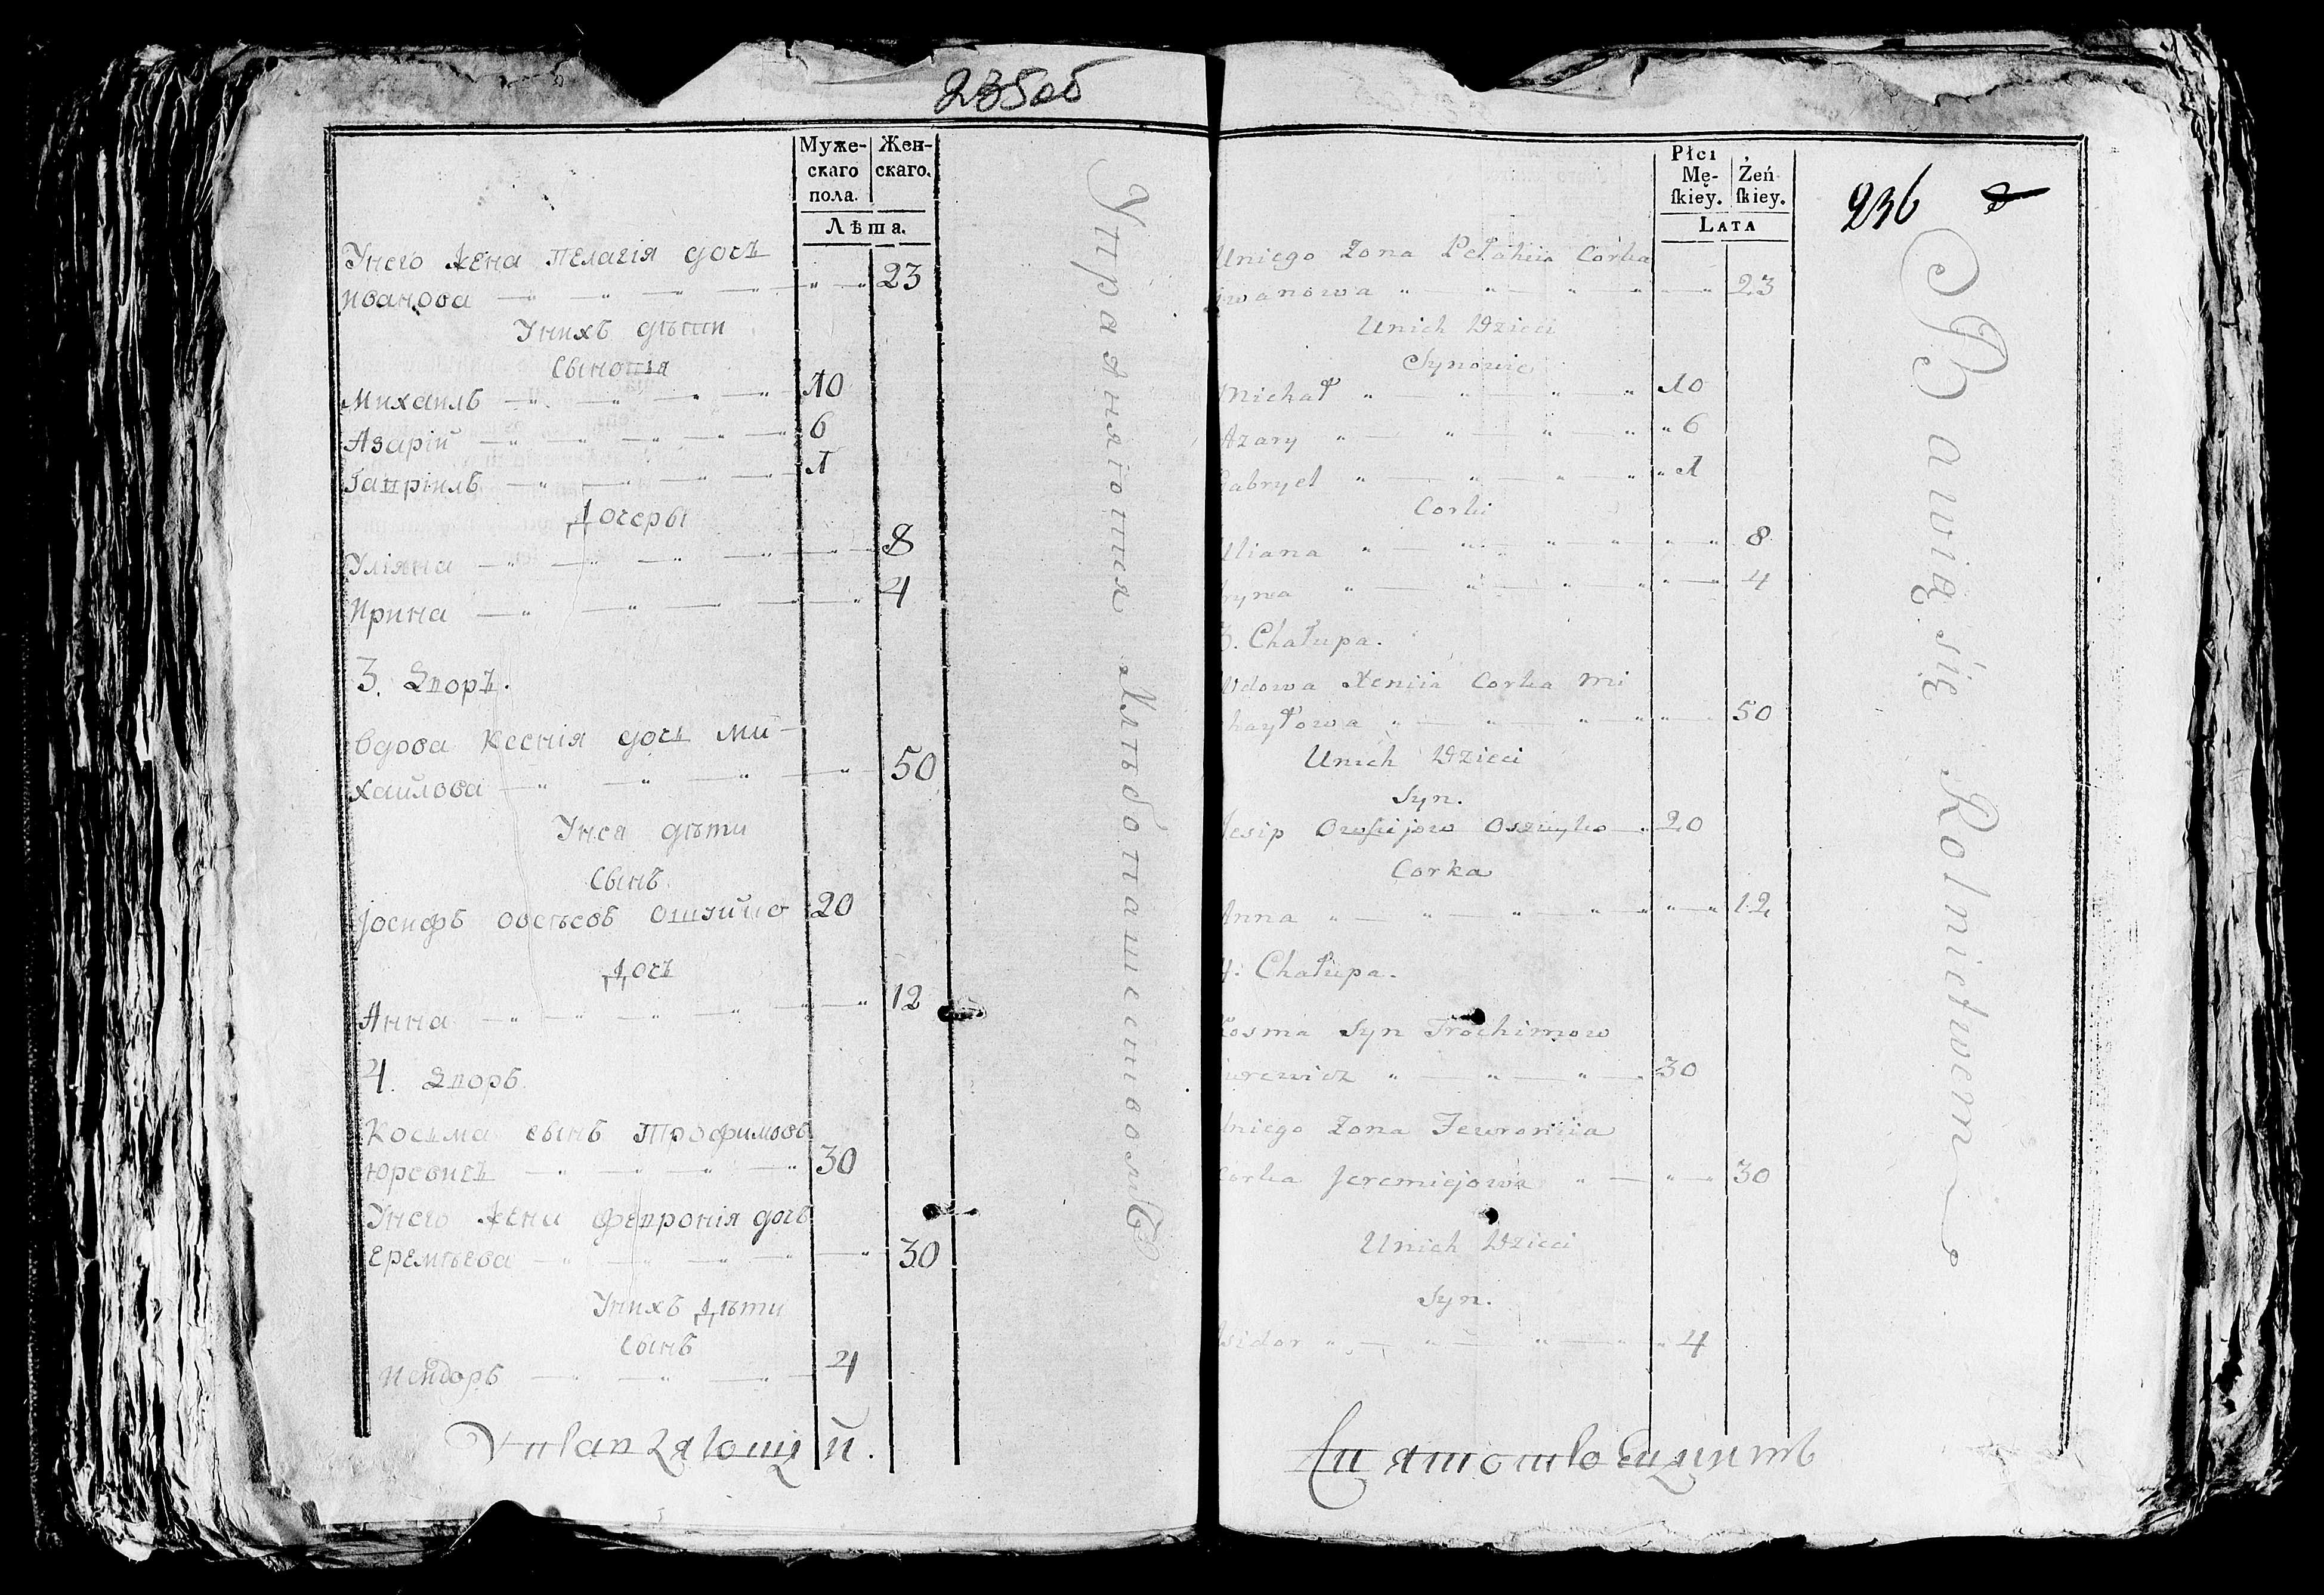 235об
Муже-
скаго
пола.
Жен-
скаго.
Лѣта.
Унего жена Пелагія дочь
Иванова 23
Унихъ дѣти
Сыновья
Михаилъ 10
Азарій 6
Гавріилъ 1
Дочеры
Уліяна 8
Ирина 4
3. Дворъ.
Вдова Ксенія дочь Ми-
хайлова 50
Унея дѣти
Сынъ
Іосифъ 20
Дочь
Анна 12
4. Дворъ.
Косьма сынъ Трофимовъ
Юревичъ 30
Унего жена Февронія дочь
Еремѣева 30
Унихъ дѣти
Сынъ
Исидоръ 4
Упражняются хлѣбопашествомъ
Płci
Mę-
ſkiey.
Żeń
ſkiey.
LATA
236
Uniego Zona Pełahiia Corka
Iwanowa 23
Unich Dzieci
Synowie
Michał 10
Azary 6
Gabryel 1
Corki
Uliana 8
Iryna 4
3. Chałupa.
Wdowa Xeniia Corka Mi
chayłowa 50
Unich Dzieci
Syn.
Iesip 20
Corka
Anna 12
4. Chałupa.
Kosma Syn Trochimow
Iurewicz 30
Uniego Zona Jewroniia
Corka Jeremiejowa 30
Unich Dzieci
Syn.
Isidor 4
Bawią się Rolnictwem